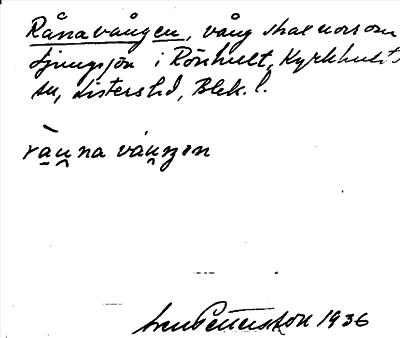 Råna vången, vång strax norr om
Ljungsjön i Rönhult, Kyrkhults
sn, Listers hd, Blek. l.
rạ̀ṇna våṇŋen
Sven Petersson 1936